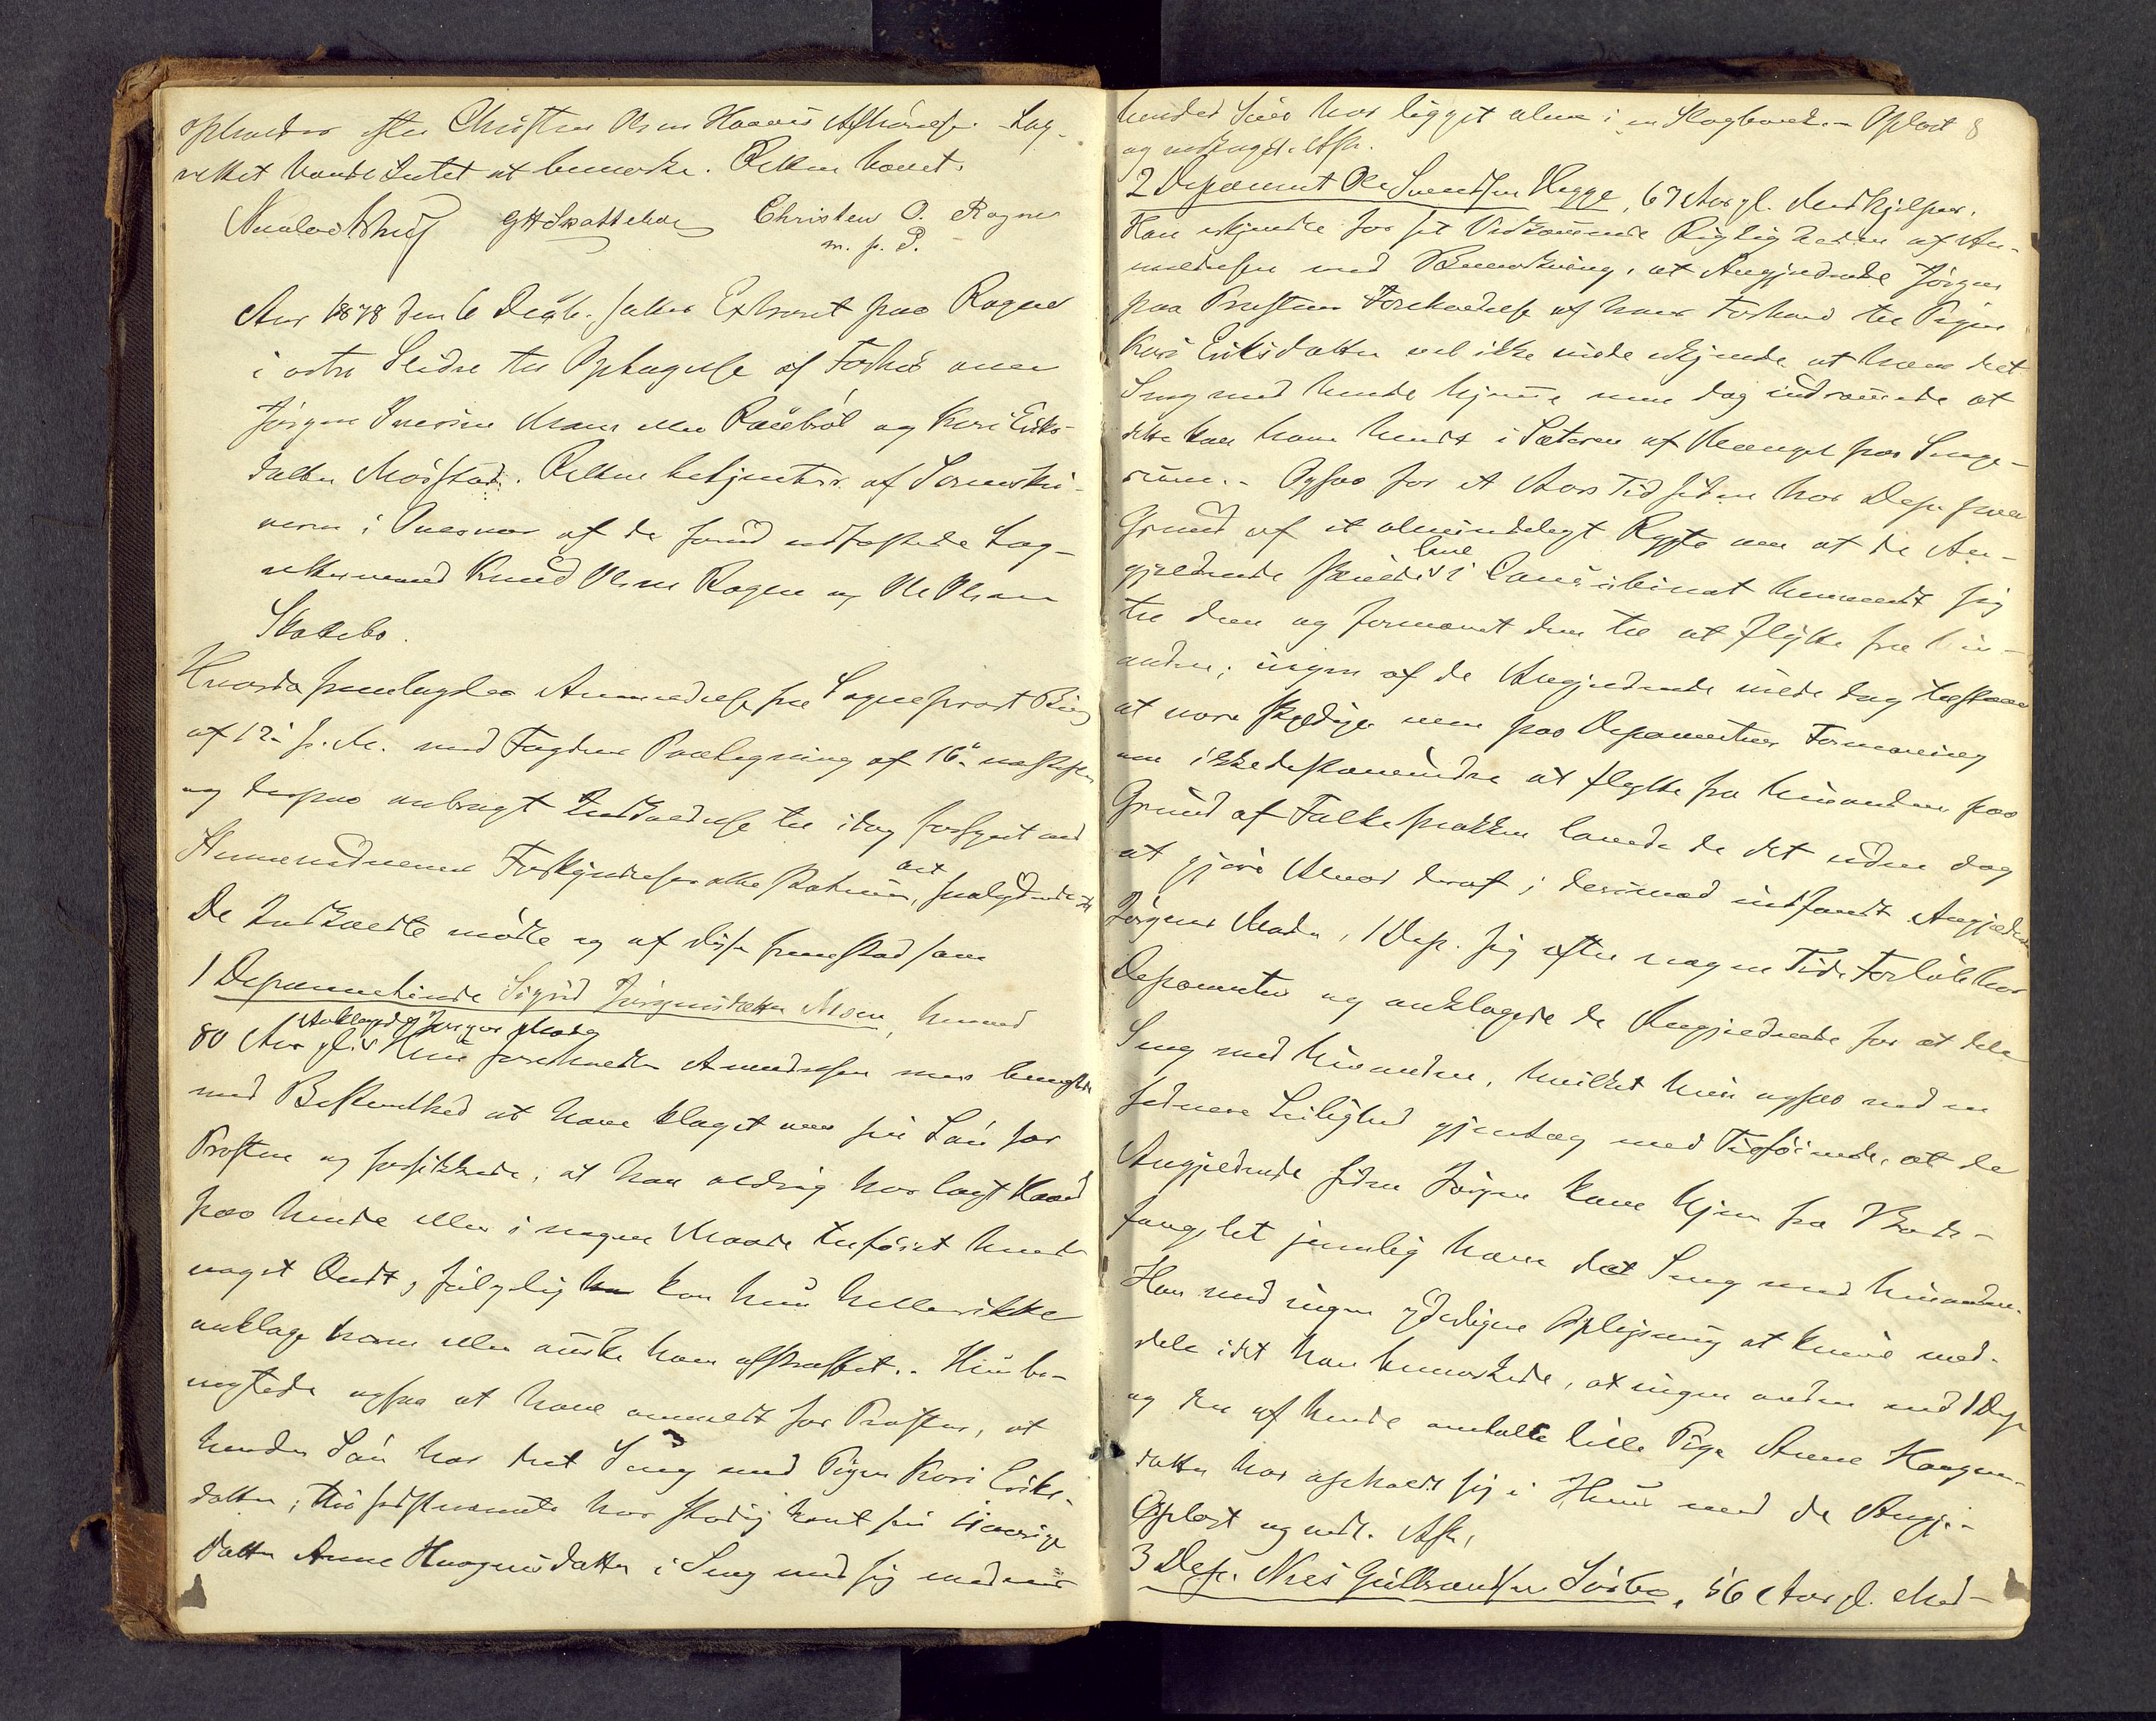 ophæves efter Christen Olsen Haavis Afhørelse. Lag-
rettet havde Intet at bemærke. Retten hævet.
GHSkattebo Christen O. Rogne
m. p. P.
Aar 1878 den 6 Decbr. sattes Extraret paa Rogne
i østre Slidre til Optagelse af Forhør over
Jørgen Iversen Moen eller og Kari Eriks-
datter Møistad. Retten betjentes af Sorenskri-
veren i Overvær af de forud udsatte Lag-
rettesmænd Knud Olsen Rogne og Ole Olsen
Skattebo.
Hvorda fremlagdes Anmeldelse fra Sogneprest
af 12 f. M. med Fogdens Paategning af 16 næstefter
og derpaa anbragt Indkaldelse til idag forsynet med
Stævnevidnernes Forkyndelses atteststation, saalydende
De Indkaldte mødte og af disse fremstod som
1 Deponentinde Sigrid Jørgensdatter Moen, henved
Anklagede Jørgens Moder
80 Aar gl. Hun foreholdtes Anmeldelsen men benegtede
med Bestemthed at have klaget over sin Søn for
Prosten og forsikkrede, at han aldrig har lagt Haand
paa hende eller i nogen Maade tilføiet hende
noget Ondt, følgelig kan hun hellerikke
anklage ham eller ønske ham afstraffet. Hun be-
negtede ogsaa at have anmeldt for Prosten, at
hendes Søn har delt Seng med Pigen Kari Eriks-
datter; thi sidstnævnte har stadig havt sin 4aarige
Datter Anne Haagensdatter i Seng med sig medens
hendes Søn har ligget alene i en Slagbænk. Oplæst 8
og vedtaget. Afsk.
2 Deponent Ole Svendsen Hegge, 67 Aar gl. Medhjelper.
Han erkjendte for sit Vidkommende Rigtigheden af An-
meldelsen med Bemærkning, at Angjeldende Jørgen
paa Prestens Foreholdelse af hans Forhold til Pigen
Kari Eriksdatter vel ikke vilde erkjende at have delt
Seng med hende hjemme men dog indrømmede at
dette kan have hendt i Sæteren af Mangel paa Senge-
rum. - Ogsaa for et Aars Tid siden har Dep. paa
Grund af et almindeligt Rygte om at de An-
gjeldende levede i Concubinat henvendt sig
til dem og formanet dem til at flytte fra hin-
anden; ingen af de Angjeldende vilde dog tilstaa
at være skyldige men paa Deponentens Formaning
om ikkedestomindre at flytte fra hinanden paa
Grund af Folkesnakken lovede de det uden dog
at gjøre Alvor deraf; derimod indfandt Angjeldende
Jørgens Moder, 1 Dep. sig efter nogen Tids Forløb hos
Deponenten og anklagede de Angjeldende for at dele
Seng med hinanden, hvilket hun ogsaa ved en
senere Leilighed gjentog med Tilføiende, at de
Angjeldende siden Jørgen kom hjem fra Bods-
fængslet jevnlig have delt Seng med hinanden.
Han ved ingen yderligere Oplysning at kunne med-
dele idet han bemærkede, at ingen anden end 1 Dep.
og den af hende omtalte lille Pige Anne Haagens-
datter har opholdt sig i Huus med de Angje-
Oplæst og vedt. Afsk.
3 Dep. Nils Gulbrandsen Sørbø, 56 Aar gl. Med-